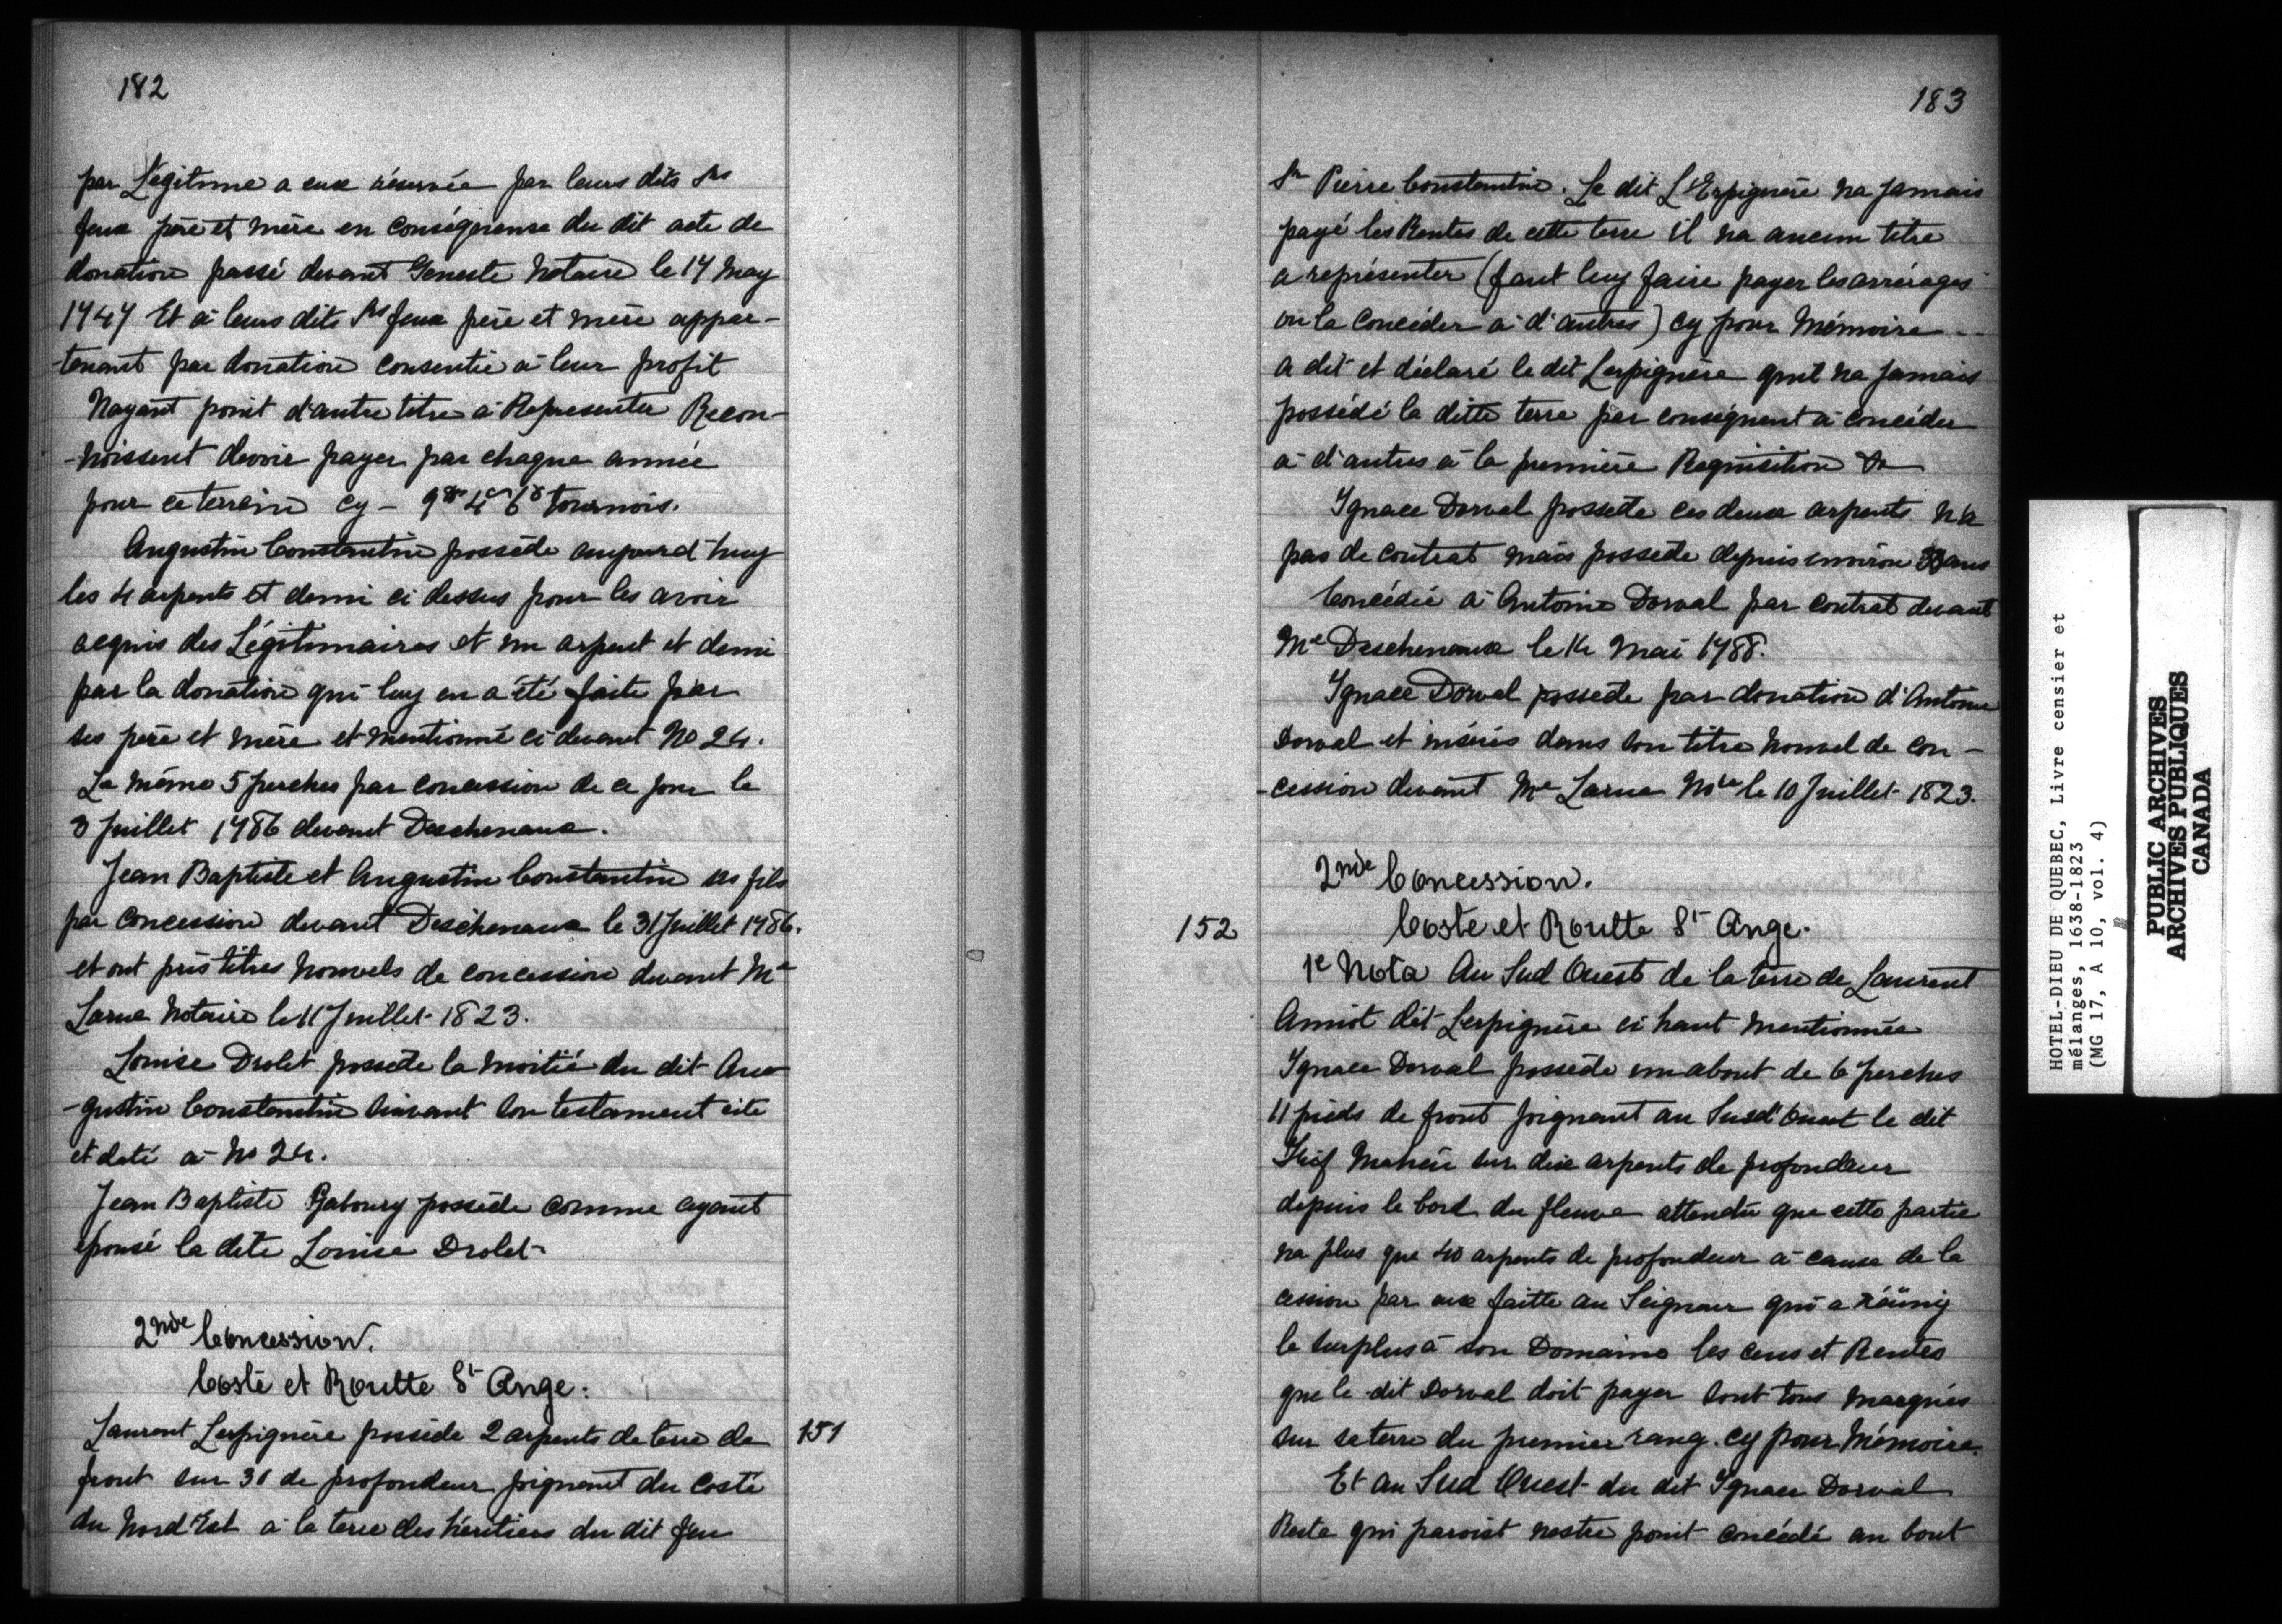 182
par Légitime a eux réservée par leurs dits Srs
feux père et mère en conséquense du dit acte de
donation passé devant Geneste Notaire le 17 May
1747 Et à leurs dits Srs feux père et mère appar-
-tenant par donation consentie à leur profit
Nayant point d'autre titre à Representer Recon-
-noissent devoir payer par chaque année
pour ce terrain cy - 9# 4s 6d tournois.
Augustin Constantin possède aujourd'huy
les 4 arpents et demi ci dessus pour les avoir
acquis des Légitimaires et un arpent et demi
par la donation qui luy en a été faite par
ses père et mère et mentionné ci devant No 24.
Le même 5 perches par concession de ce jour le
3 Juillet 1786 devant Deschenaux.
Jean Baptiste et Augustin Constantin ses fils
par concession devant Deschenaux le 31 Juillet 1786.
et ont pris titres nouvels de concession devant Me
Larue Notaire le 11 Juillet 1823.
Louise Drolet possède la moitié du dit Au-
-gustin Constantin suivant son testament cité
et daté à No 24.
Jean Baptiste Gaboury possède comme ayant
épousé la dite Louise Drolet-
2nde Concession.
Costé et Routte St Ange.
Laurent Lespignère possède 2 arpents de terre de
151
front sur 30 de profondeur joignant du costé
du Nord Est à la terre des héritiers du dit feu
183
Sr Pierre Constantin. Le dit L'Espignère na jamais
payé les Rentes de cette terre il na aucun titre
a représenter (faut luy faire payer les arrérages
ou la concéder à d'autres) cy pour Mémoire
a dit et déclaré le dit Lespignère quil na jamais
possédé la ditte terre par conséquent à concéder
à d'autres à la première Requisition
Ignace Dorval possede ces deux arpents n'a
pas de contrat mais possede depuis environ 33 ans
Concédée à Antoine Dorval par contrat devant
Me Deschenaux le 14 Mai 1788.
Ignace Dorval possede par donation d'Antoine
Dorval et insérés dans son titre nouvel de con-
-cession devant Me Larue Nore le 10 Juillet 1823.
2nde Concession.
152
Coste et Routte St Ange.
1e Nota Au Sud Ouest de la terre de Laurent
Amiot dit Lespignère ci haut mentionnée
Ignace Dorval possède un about de 6 perches
11 pieds de front joignant au Sud Ouest le dit
Josf Maheu sur dix arpents de profondeur
depuis le bord du fleuve attendu que cette partie
na plus que 40 arpents de profondeur à cause de la
cession par eux faitte au Seigneur qui a réüniy
le surplus à son Domaine les cens et Rentes
que le dit Dorval doit payer sont tous marqués
sur sa terre du premier rang. cy pour Mémoire.
Et au Sud Ouest du dit Ignace Dorval
Reste qui paroist nestre point concédé au bout
HOTEL-DIEU DE QUEBEC, Livre censier et
mélanges, 1638-1823
(MG 17, A 10, vol. 4)
PUBLIC ARCHIVES
ARCHIVES PUBLIQUES
CANADA